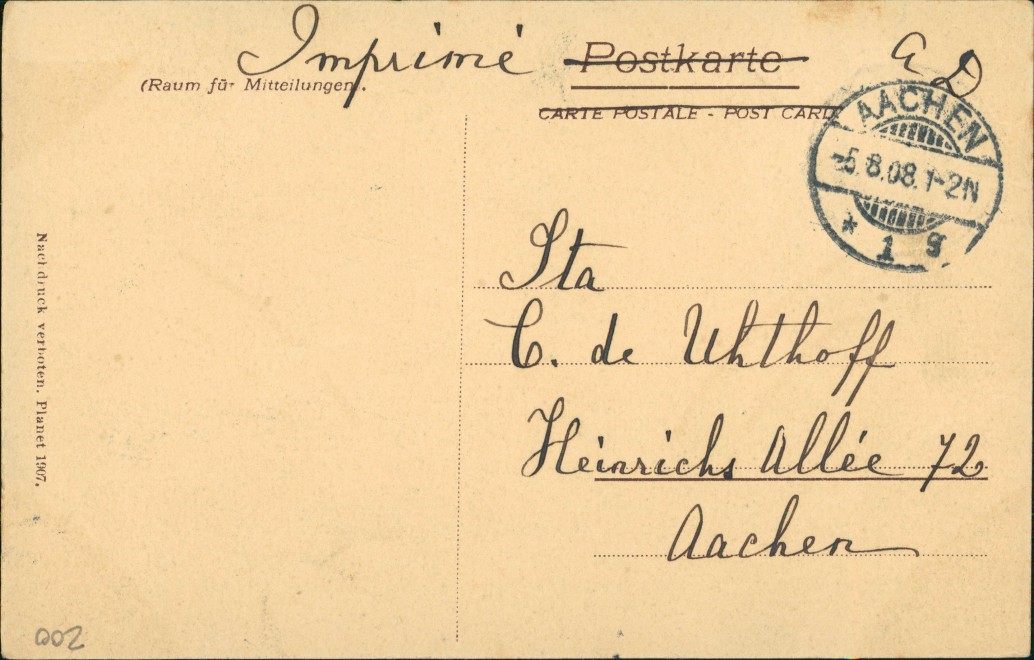 Imprimé
Postkarte
(Raum für Mitteilungen).
CARTE POSTALE - POST CARD
AACHEN
-5.8.08.1-2N
* 1 g
Sta
C. de Uhthoff
Heinrichs Allée 72
Aachen
Nachdruck verboten. Planet 1907.
002